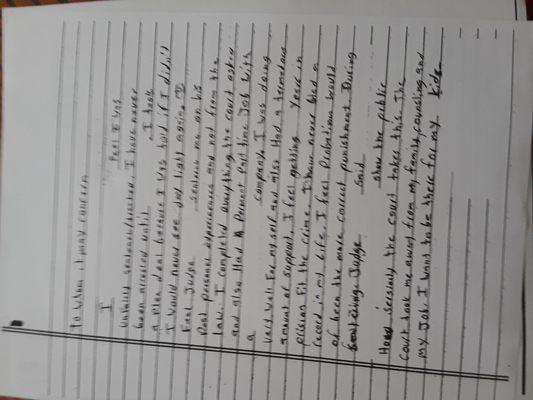 To whom it may concern
I feel I was
unfairly sentence/directed. I have never
been arrested until I took
a plea deal because I was told if I didn't
I would never see day light again. I
Feel Judge sentence me on his
Past personal experiences and not from the
law. I completed everything the court asked
and also Had A Perment Part time Job with
a company. I was doing
very well For my self and also Had a tremendous
amount of support. I feel getting years in
prision Fit the crime. I have never Had a
record in my Life. I feel Probation would
of been the more correct punishment. During
Sentencing Judge said
show the public
How serisisly the court takes this. The
court took me away from my family, counsling and
my Job. I want to be there for my kids